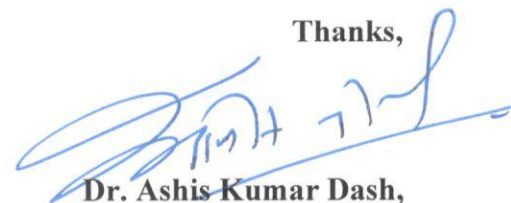 Thanks,
Dr. Ashis Kumar Dash,